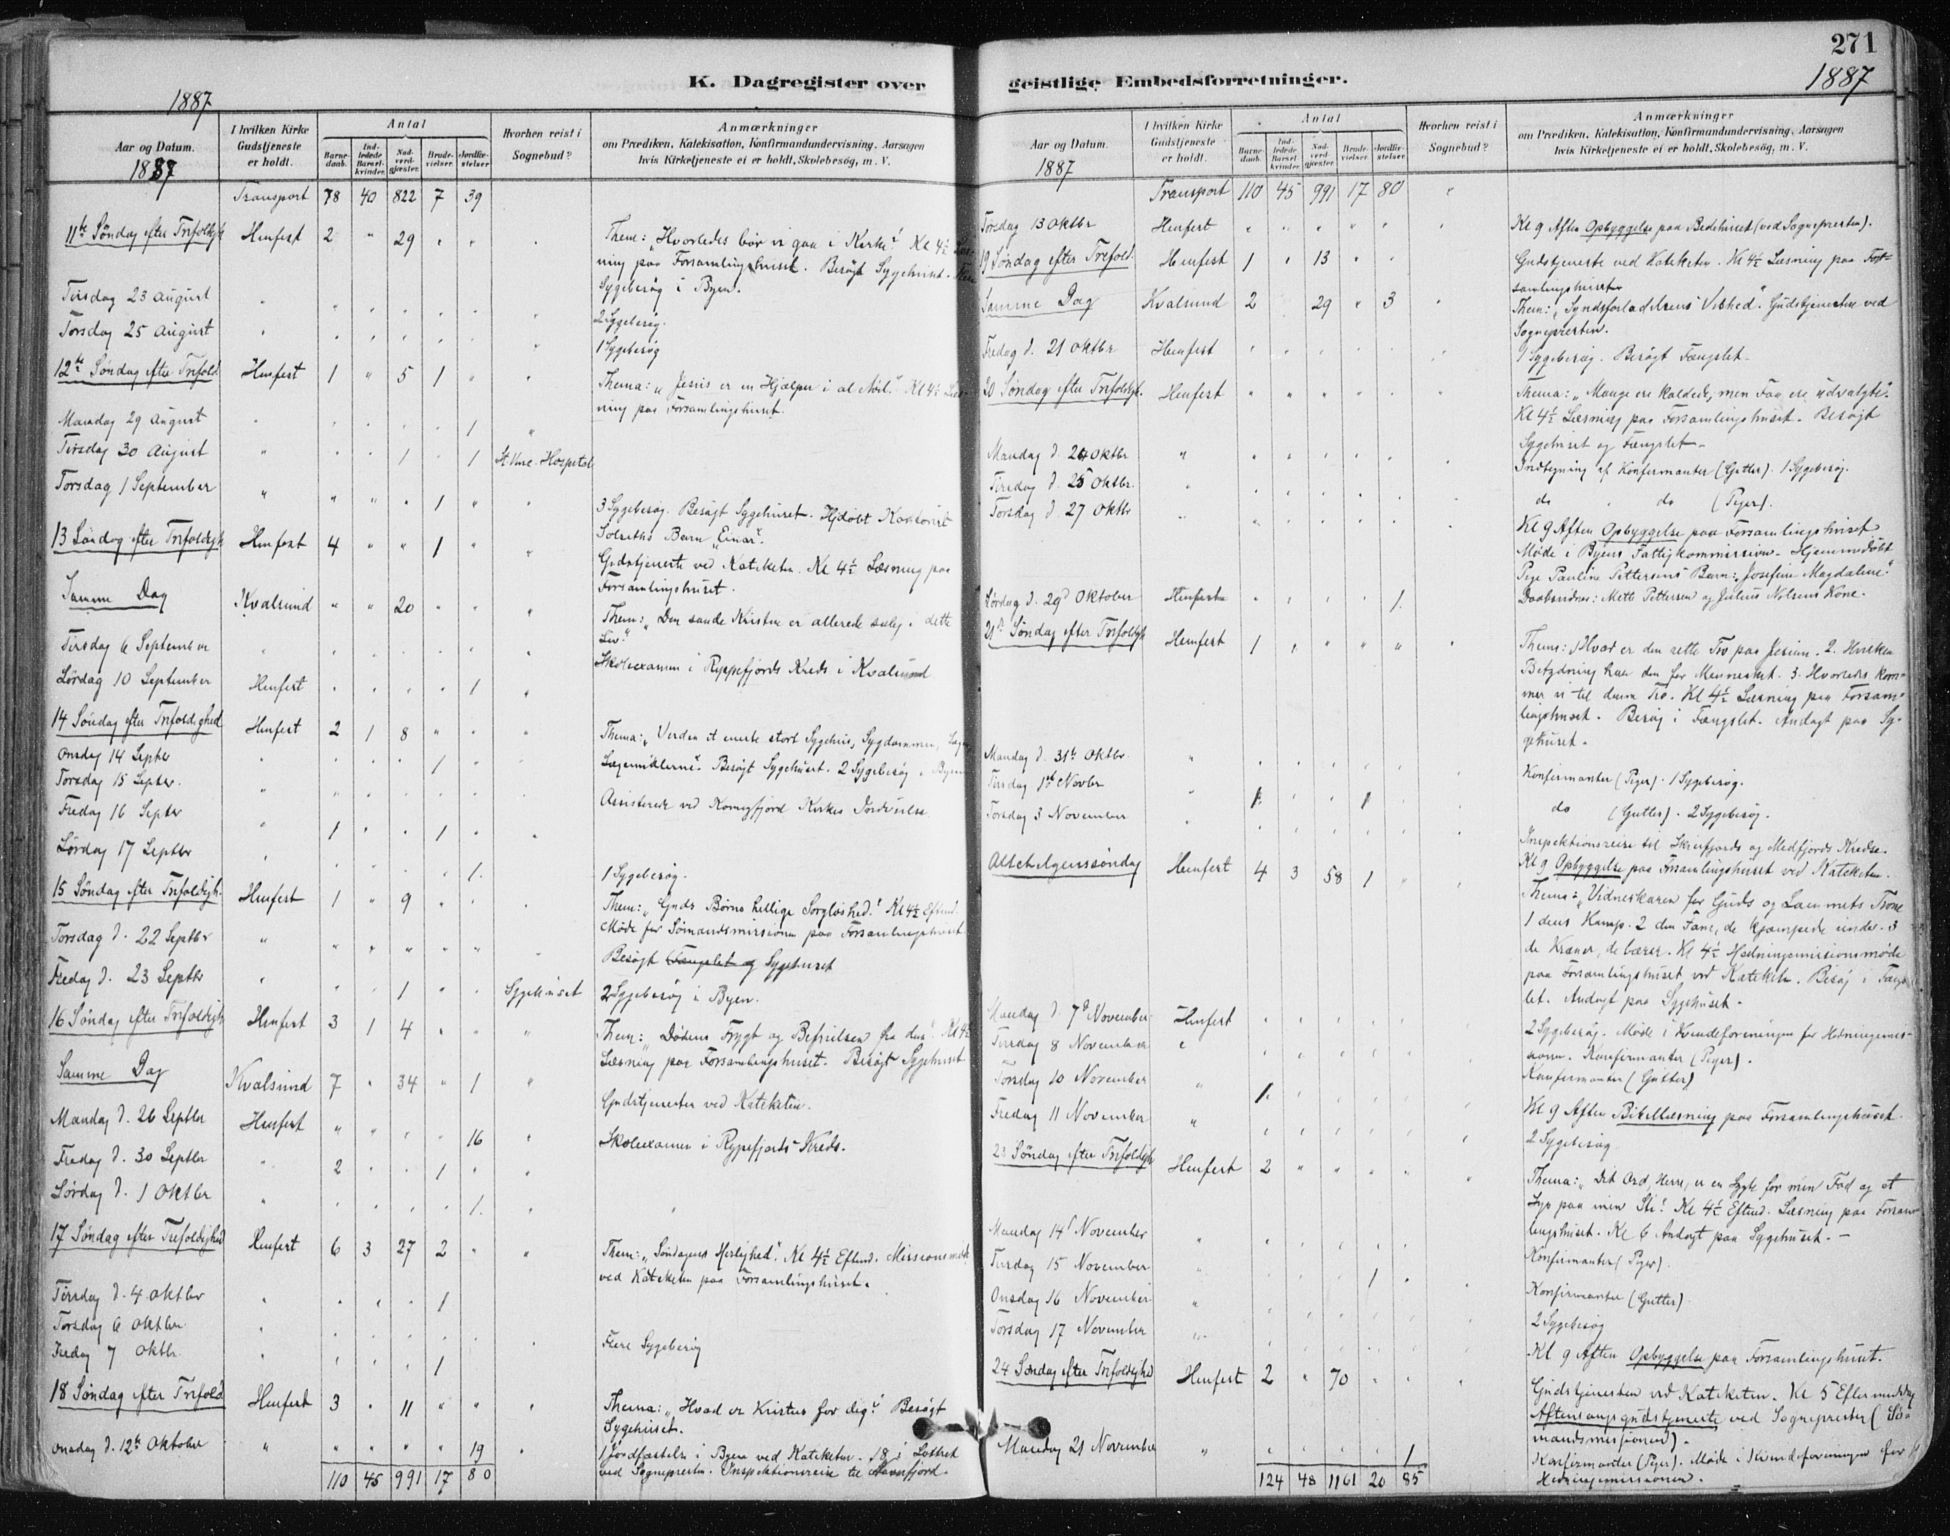 271
1887
1887
K. Dagregister over geistlige Embedsforretninger.
Aar og Datum.
1887
I hvilken Kirke Gudstjeneste er holdt.
Antal
Barne-daab.
Ind-ledede Barsel-kvinder.
Nad-verd-gjæster.
Brude-vielser.
Jordfæ-stelser.
Hvorhen reist i Sognebud?
Anmærkninger
om Prædiken, Katekisation, Konfirmandundervisning, Aarsagen
hvis Kirketjeneste ei er holdt, Skolebesøg, m. V.
Transport 78 40 822 7 39
11te Søndag efter Trifoldigh Hmfest 2 " 29 " "
Them: "Hvorledes bør vi gaa i Kirke". Kl 4½ Læs-
ning paa Forsamlingshuset. Besøgt Sygehuset.
Sygebesøg i Byen.
Tirsdag 23 August
2 Sygebesøg.
Torsdag 25 August
1 Sygebesøg
12te Søndag efter Trifold. Hmfest 1 " 5 1 "
Thema: "Jesus er en Hjælper i al Nöd." Kl 4½ Læs-
ning paa Forsamlingshuset.
Mandag 29 August 1
Tirsdag 30 August 1 1 Hospital
Torsdag 1 September 1
3 Sygebesøg. Besøgt Sygehuset. Hjdøbt
Barn "Einar".
13 Søndag efter Trifoldigh Hmfest 4 " " 1
Gudstjeneste ved Kateketen. Kl 4½ Læsning paa
Forsamlingshuset.
Samme Dag Kvalsund " " 20
Them: "Den sande Kristen er allerede salig i dette
Liv."
Tirsdag 6 September
Skoleexamen i Ryppefjords Kreds i Kvalsund
Lørdag 10 September Hmfest 1
14 Søndag efter Trifoldighed Hmfest 2 1 8
Thema: "Verden et eneste stort Sygehus, Sygdommen,
Lægemidlerne". Besøgt Sygehuset. 2 Sygebesøg i Byen
Onsdag 14 Septbr 1
Torsdag 15 Septbr.
Assisterede ved Komagfjord Kirkes Indvielse
Fredag 16 Septbr 1 1
Lørdag 17 Septbr 1
1 Sygebesøg.
15 Søndag efter Trifoldigh. Hmfest 1 " 9
Them: "Guds Børns hellige Sorgløshed." Kl 4½ Eftmd.
Møde for Sömandsmissionen paa Forsamlingshuset
Torsdag d. 22 Septbr
Besøgt Fængslet og Sygehuset
Fredag d. 23 Septbr 1 Sygehuset
2 Sygebesøg i Byen.
16 Søndag efter Trifoldigh Hmfest 3 1 4
Them: "Dødens Frygt og Befrielsen fra den". Kl 4½
Læsning paa Forsamlingshuset. Besøgt Sygehuset
Samme Dag Kvalsund 7 " 34 " 1
Gudstjenesten ved Kateketen.
Mandag d. 26 Septbr Hmfest 16
Skoleexamen i Rypefjords Kreds.
Fredag d. 30 Septbr 2 1
Lørdag d. 1 Oktbr 1
17 Søndag efter Trefoldighed Hmfest 6 3 27 2
Them: "Søndagens Herlighed". Kl 4½ Eftmd. Missionsmøde
ved Kateketen paa Forsamlingshuset.
Tirsdag d. 4 Oktbr 1
Torsdag 6 Oktbr
Flere Sygebesøg
Fredag 7 Oktbr 1
18 Søndag efter Trifold Hmfest 3 " 11
Thema: "Hvad er Kristus for dig". Besøgt
Sygehuset.
Onsdag d. 12te Oktober 19
1 Jordfæstelse i Byen ved Kateketen. 18 i
ved Sognepresten. Inspektionsreise til
110 45 991 17 80
Aar og Datum.
1887
I hvilken Kirke Gudstjeneste er holdt.
Antal
Barne-daab.
Ind-ledede Barsel-kvinder.
Nad-verd-gjæster.
Brude-vielser.
Jordfæ-stelser.
Hvorhen reist i Sognebud?
Anmærkninger
om Prædiken, Katekisation, Konfirmandundervisning, Aarsagen
hvis Kirketjeneste ei er holdt, Skolebesøg, m. V.
Transport 110 45 991 17 80
Torsdag 13 Oktbr Hmfest
Kl 9 Aften Opbyggelse paa Bedehuset (ved Sognepresten).
19 Søndag efter Trefold. Hmfest 1 " 13
Gudstjeneste ved Kateketen. Kl 4½ Læsning paa For-
samlingshuset
Samme Dag Kvalsund 2 29 " 3
Them: "Syndsforladelsens Vished". Gudstjenesten ved
Sognepresten.
Fredag d. 21 Oktbr Hmfest
1 Sygebesøg. Besøgt Fængslet.
20 Søndag efter Trifoldigh. Hmfest
Thema: "Mange ere kaldede, men Faa ere udvalgte".
Kl 4½ Læsning paa Forsamlingshuset. Besøgt
Sygehuset og Fængslet.
Mandag d. 24 Oktbr
Indtegning af Konfirmanter (Gutter). 1 Sygebesøg.
Tirsdag d. 25 Oktbr.
do " do (Piger).
Torsdag d. 27 Oktbr
Kl 9 Aften Opbyggelse paa Forsamlingshuset
Møde i Byens Fattigkommission. Hjemmedöbt
Pige Pauline Pettersens Barn: "Josefine Magdalene".
Daabsvidner: Mette Pettersen og Julius Nilsens Kone.
Lørdag d. 29d Oktober Hmfest 1
21de Søndag efter Trifoldigh Hmfest 1
Thema: 1 Hvad er den rette Tro paa Jesum. 2. Hvilken
Betydning har den for Mennesket. 3. Hvorledes kom-
mer vi til denne Tro. Kl 4½ Læsning paa Forsam-
lingshuset. Besøg i Fængslet. Andagt paa Sy-
gehuset.
Mandag d. 31te Oktbr
Konfirmanter (Piger). 1 Sygebesøg.
Tirsdag 1ste Novbr 1 1
do (Gutter). 2 Sygebesøg.
Torsdag 3 November
Inspektionsreise til Skreifjords og Medfjords Kredse.
Kl 9 Opbyggelse paa Forsamlingshuset ved Kateketen.
Allehelgenssøndag Hmfest 4 3 58 1
Thema: "Vidneskaren for Guds og Lammets Trone
1 dens Kamp. 2 den Fane, de kjæmpede under. 3
de Kroner, de bærer. Kl 4½ Hedningemissionsmøde
paa Forsamlingshuset ved Kateketen. Besøg i Fængs-
let. Andagt paa Sygehuset.
Mandag d. 7d November Hmfest
2 Sygebesøg. Møde i Kvindeforeningen for Hedningemis-
sionen. Konfirmanter (Piger).
Tirsdag 8 November
Konfirmanter (Gutter)
Torsdag 10 November 1
Kl 9 Aften Bibellæsning paa Forsamlingshuset.
Fredag 11 November
2 Sygebesøg
23 Søndag efter Trifoldigh Hmfest 2
Thema: "Dit Ord, Herre, er en Lygte for min Fod og et
Lys paa min Sti". Kl 4½ Eftmd. Læsning paa Forsam-
lingshuset. Kl 6 Andagt paa Sygehuset. —
Mandag 14d November
Konfirmanter (Piger).
Tirsdag 15 November 1
Konfirmanter (Gutter).
Onsdag 16 November
2 Sygebesøg
Torsdag 17 November
Kl 9 Aften Opbyggelse paa Forsamlingshuset.
24 Søndag efter Trifoldighed Hmfest 2 " 70
Gudstjenesten ved Kateketen. Kl 5 Eftermiddag
Aftensangsgudstjeneste ved Sognepresten (Sö-
mandsmissionen).
Mandag 21 November 1
Konfirmanter (Piger). Møde i Kvindeforeningen for
Hedningemissionen.
124 48 1161 20 85